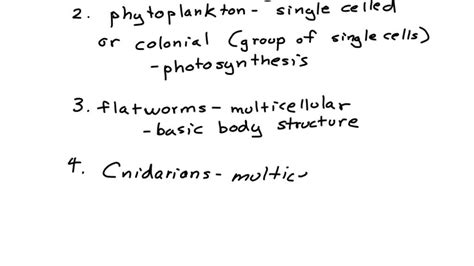 2. phytoplankton - single celled
or colonial (group of single cells)
- photosynthesis
3. flatworms - multicellular
- basic body structure
4. Cnidarions - multic